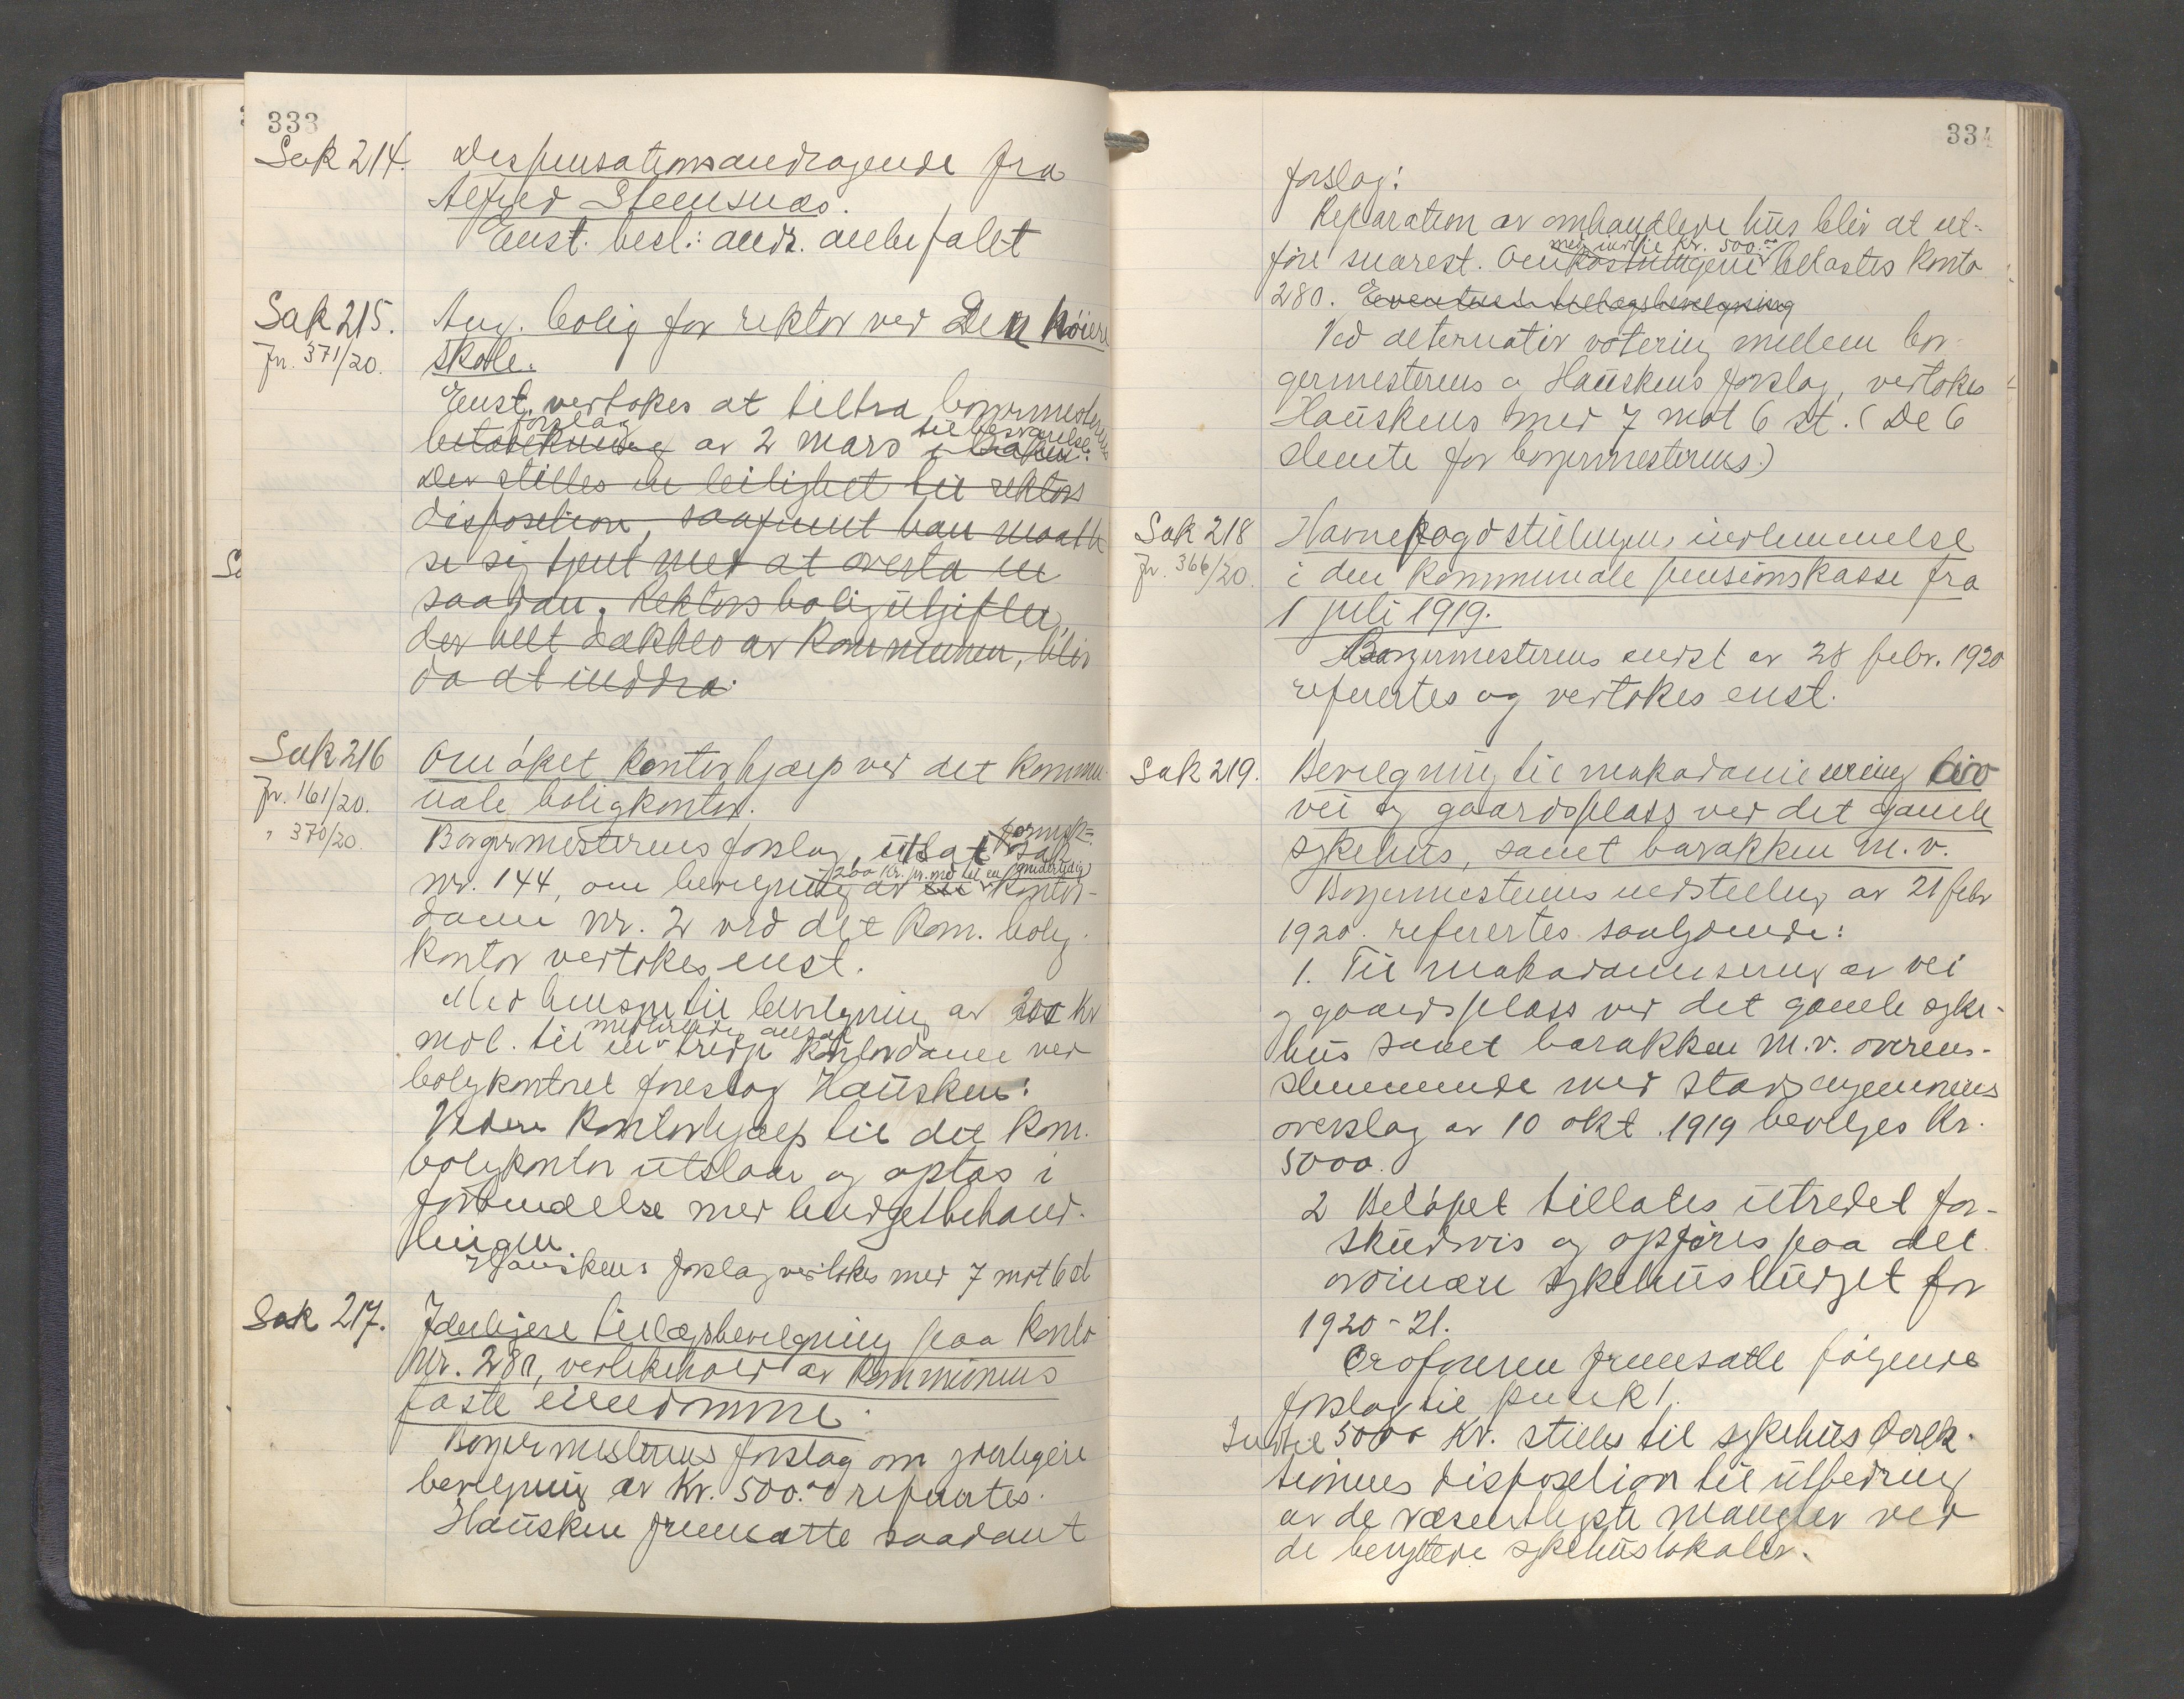 333
Sak 214. Dispensationsandragende fra
Alfred Steensnæs.
Enst. besl.: andr. anbefalet
Sak 215. Ang. bolig for rektor ved Den høiere
Jr. 371/20. skole.
Enst. vedtokes at tiltra borgermesterens
forslag til besvarelse
betænkning av 2 mars i saken:
Der stilles en leilighet til rektors
disposition, saafremt han maatte
se sig tjent med at overta en
saadan. Rektors boligutgifter,
der helt dækkes av kommunen, blir
da at inddra.
Sak 216 Om øket kontorhjælp ved det kommu-
Jr. 161/20. nale boligkontor.
" 370/20.
Borgermesterens forslag, utsat formsk=
sak
200 kr. pr. md til en midlertidig
nr. 144, om bevilgning av en kontor-
dame nr. 2 ved det kom. bolig-
kontor vedtokes enst.
Med hensyn til bevilgning av 200 kr
midlertidig ansat
mdl. til en tredje kontordame ved
boligkontoret foreslog Hausken:
Videre kontorhjælp til det kom.
boligkontor utstaar og optas i
forbindelse med budgetbehand-
lingen.
Hauskens forslag vedtokes med 7 mot 6 st
Sak 217. Yderligere tillægsbevilgning paa konto
nr. 280, vedlikehold av kommunens
faste eiendomme.
Borgermesterens forslag om yderligere
bevilgning av Kr. 500.00 refertes.
Hausken fremsatte saadant
334
forslag:
Reparation av omhandlede hus blir at ut-
med indtil Kr. 500.00
føre snarest. Omkostningene belastes konto
280. Eventuel tillægsbevilgning
Ved alternativ votering mellem bor-
germesterens og Hauskens forslag, vedtokes
Hauskens med 7 mot 6 st. (De 6
stemte for borgermesterens.)
Sak 218 Havnefogdstillingens indlemmelse
Jr. 366/20. i den kommunale pensionskasse fra
1 juli 1919.
Borgermesterens indst av 28 febr. 1920
refertes og vedtokes enst.
Sak 219. Bevilgning til makadamisering av
vei og gaardsplass ved det gamle
sykehus, samt barakken m. v.
Borgermesterens indstilling av 21 febr
1920. refertes saalydende:
1. Til makadamisering av vei
og gaardsplass ved det gamle syke-
hus samt barakken m.v. overens-
stemmende med stadsingeniørens
overslag av 10 okt. 1919 bevilges kr.
5000.
2 Beløpet tillates utredet for-
skudvis og opføres paa det
ordinære sykehusbudget for
1920-21.
Ordføreren fremsatte følgende
forslag til punkt 1.
Indtil 5000 Kr. stilles til sykehusdirek-
tionens disposition til utbedring
av de væsentligste mangler ved
de benyttede sykehuslokaler.